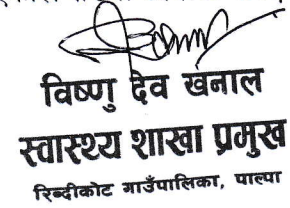 विष्णु देव खनाल
स्वास्थ्य शाखा प्रमुख
रिब्दीकोट गाउँपालिका, पाल्पा